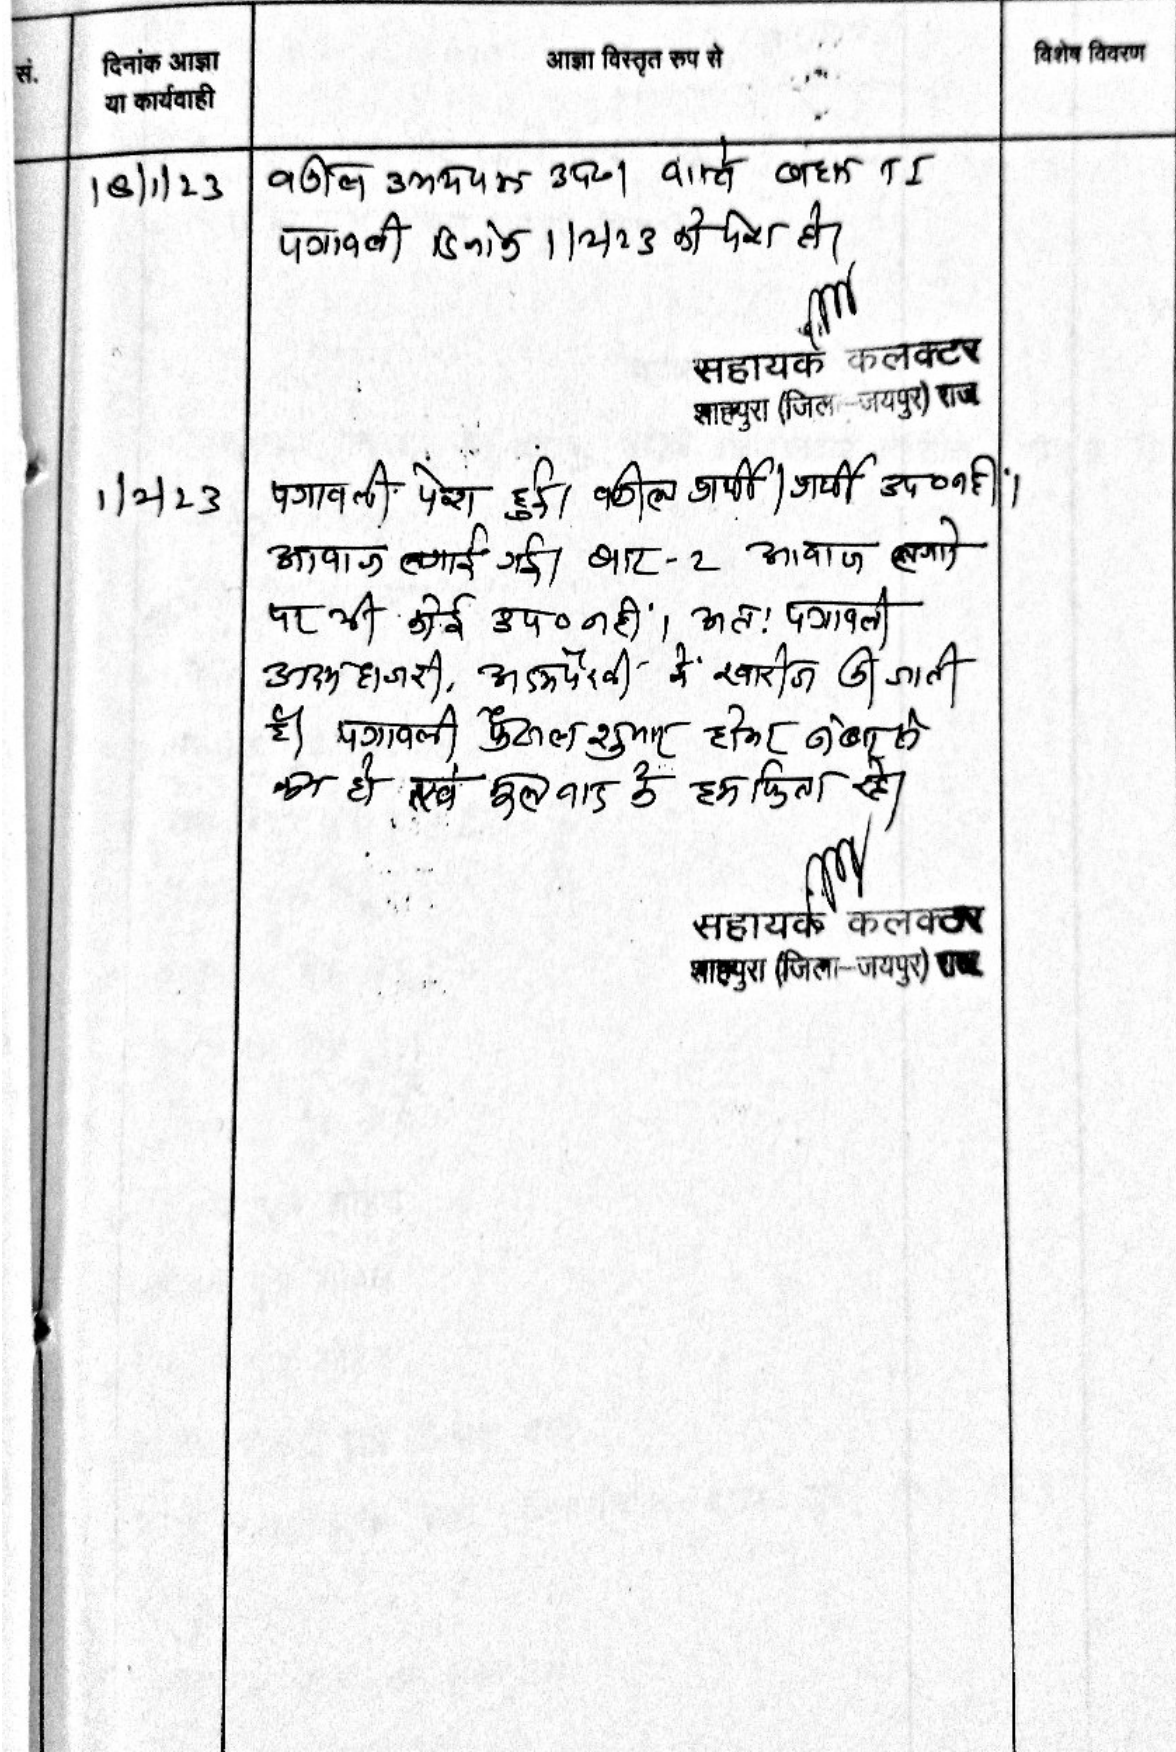 सं.
दिनांक आज्ञा
या कार्यवाही
आज्ञा विस्तृत रूप से
विशेष विवरण
18/1/23
वकील उभयपक्ष उप० । वास्ते बहस TI
पत्रावली दिनांक 1/2/23 को पेश हो।
सहायक कलक्टर
शाहपुरा (जिला-जयपुर) राज
1/2/23
पत्रावली पेश हुई। वकील प्रार्थी/प्रार्थी उप० नहीं।
आवाज लगाई गई। बार-2 आवाज लगाने
पर भी कोई उप० नहीं। अतः पत्रावली
अदम हाजरी, अदम पैरवी में खारीज की जाती
है। पत्रावली फैसल शुमार होकर नंबर से
कम हो मूल वाद के हम रहे।
सहायक कलक्टर
शाहपुरा (जिला-जयपुर) राज